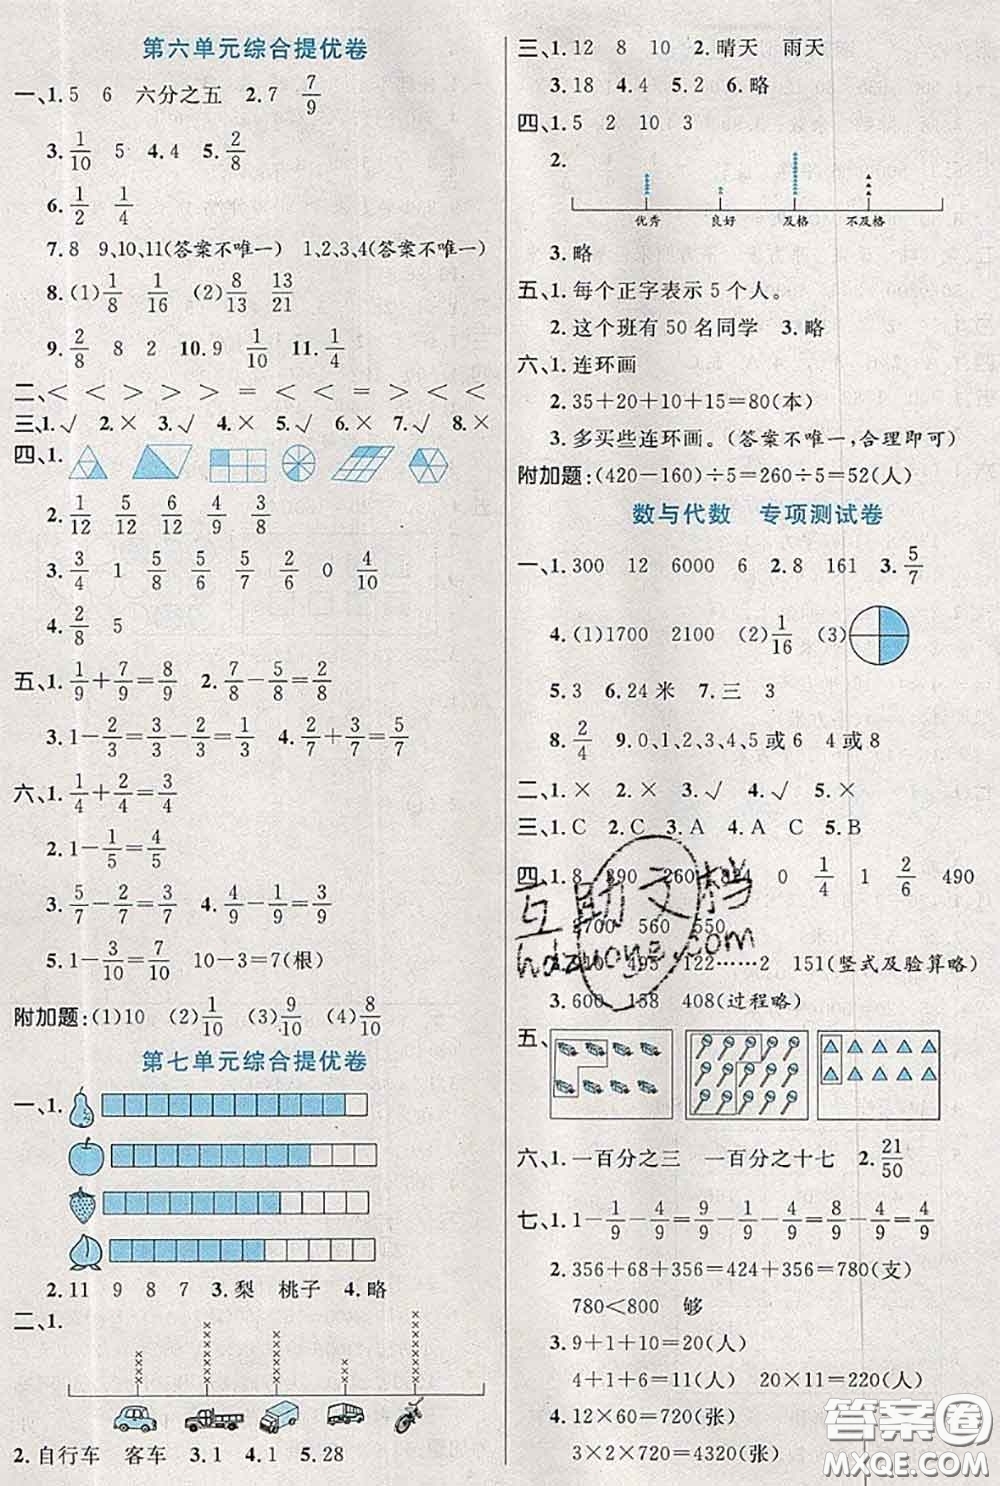 第六单元综合提优卷
一、1.5 6 六分之五 2.7 7/9
3.1/10 5 4.4 5.2/8
6.1/2 1/4
7.8 9,10,11(答案不唯一) 1、2、3、4(答案不唯一)
8.(1)1/8 1/16 (2)8/13 13/21
9.2/8 8 2 10.9 1/10 11.1/4
二、< < > > > = < = < > < <
三、1.√ 2.× 3.√ 4.× 5.√ 6.× 7.√ 8.×
四、1.
2.1/12 5/12 6/12 4/9 3/8
3.3/4 1 5/15 2/9 5/7 2/6 0 4/10
4.2/8 5
五、1.1/9+7/9=8/9 2.7/8-5/8=2/8
3.1-2/3=3/3-2/3=1/3 4.2/7+3/7=5/7
六、1.1/4+2/4=3/4
2.1-1/5=4/5
3.5/7-2/7=3/7 4.4/9-1/9=3/9
5.1-3/10=7/10 10-3=7(根)
附加题:(1)10 (2)1/10 (3)9/10 (4)8/10
第七单元综合提优卷
一、1.
2.11 9 8 7 3.梨 桃子 4.略
二、1.
2.自行车 客车 3.1 4.1 5.28
三、1.12 8 10 2.晴天 雨天
3.18 4.4 5.2 6.略
四、1.5 2 10 3
2.
优秀 良好 及格 不及格
3.略
五、1.每个正字表示5个人。
2.这个班有50名同学 3.略
六、1.连环画
2.35+20+10+15=80(本)
3.多买些连环画。(答案不唯一,合理即可)
附加题:(420-160)÷5=260÷5=52(人)
数与代数 专项测试卷
一、1.300 12 6000 6 2.8 161 3.5/7
4.(1)1700 2100 (2)1/16 (3)
5.3 6.24米 7.三 3
8.2/4 9.0、1、2、3、4、5或6 4或8
二、1.× 2.× 3.√ 4.√ 5.×
三、1.C 2.C 3.A 4.A C 5.B
四、1.8 390 260 824 0 1/4 1 2/6 490
700 560 550
495 122……2 151(竖式及验算略)
3.600 158 408(过程略)
五、
六、1.一百分之三 一百分之十七 2.21/50
七、1.1-1/9-4/9=9/9-1/9-4/9=8/9-4/9=4/9
2.356+68+356=424+356=780(支)
780<800 够
3.9+1+10=20(人)
4+1+6=11(人) 20×11=220(人)
4.12×60=720(张)
3×2×720=4320(张)
互助文档
hdzuoye.com
答案圈
MXQE.COM